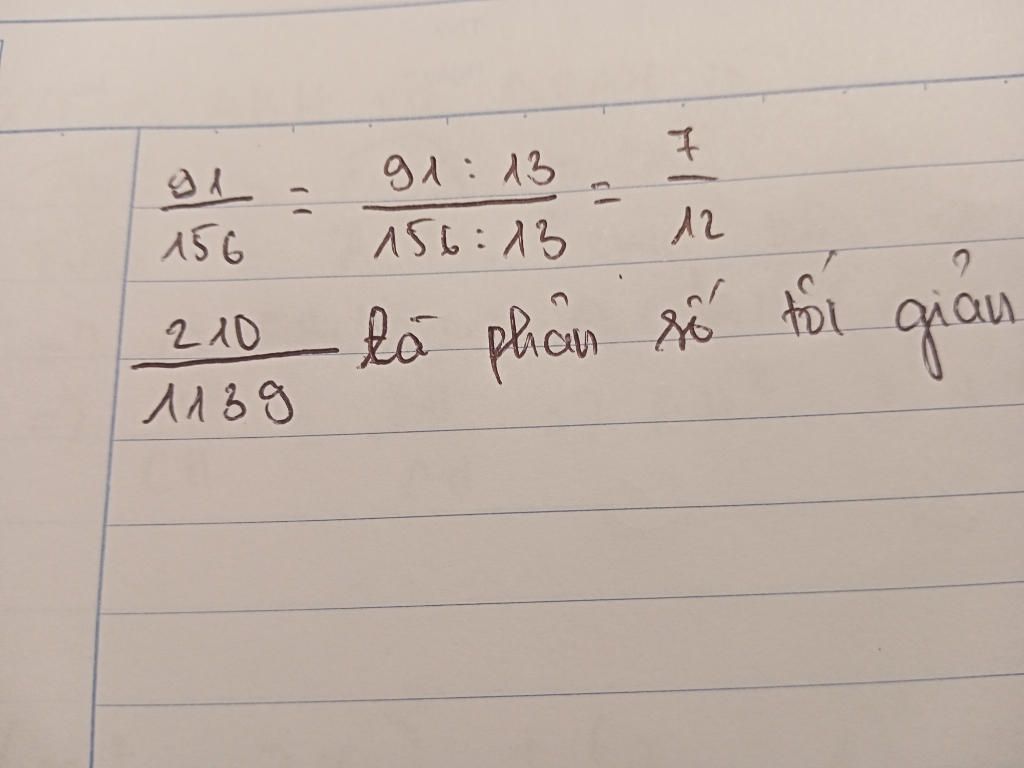 91/156 = 91 : 13/156 : 13 = 7/12
210/1139 là phân số tối giản